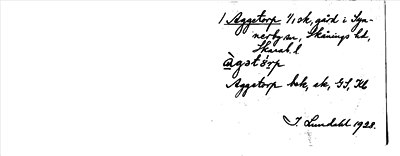 1 Aggetorp 1/1 ck, gård i Syn-
nerby sn, Skånings hd,
Skarab. l
àgstórp
Aggetorp bek, ek, GS, Kb
I. Lundahl 1928.